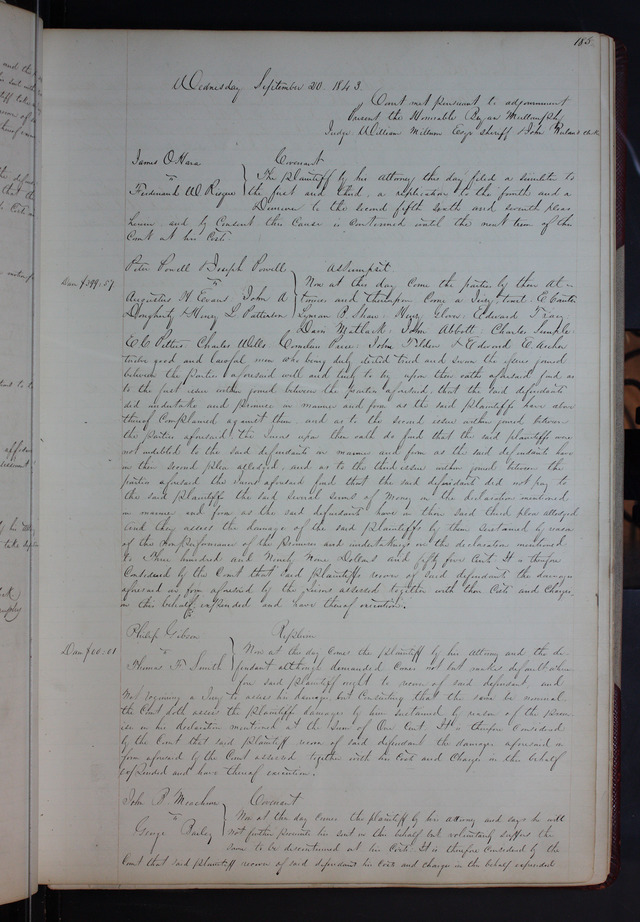 185
Wednesday September 20. 1843.
Court met pursuant to adjournment
Present the Honorable Bryan Mullanphy
Judge, William Milburn Esqr Sheriff & John Ruland Clerk
James O Hara Covenant
vs
Ferdinand W Risque The plaintiff by his Attorney this day filed a similiter to
the first and third, a replication to the fourth and a
Demurrer to the second fifth sixth and seventh pleas
herein and by Consent this Cause is continued until the next term of this
Court at his Costs
Peter Powell & Joseph Powell Assumpsit
Dam $399.57 vs
Augustus H Evans John A Dougherty & Henry L Patterson
Now at this day come the parties by their At-
tornies and thereupon Come a Jury to wit. E
Lyman B Shaw. Henry Edward Tracy
David Matlack. John Abbott. Charles Semple
E C Charles Wells. Cornelius John Felden & Edward E Archer
twelve good and lawful men who being duly elected tried and sworn the issues joined
between the parties aforesaid well and truly to try upon their oath aforesaid find as
to the first issue within joined between the parties aforesaid, that the said defendants
did undertake and promise in manner and form as the said plaintiffs have above
thereof Complained against them, and as to the second issue within joined between
the parties aforesaid, the Jurors upon their oath do find that the said plaintiffs were
not indebted to the said defendants in manner and form as the said defendants have
in their second plea alleged, and as to the third issue within joined between the
parties aforesaid the Jurors aforesaid find that the said defendants did not pay to
the said plaintiffs the said several sums of money in the declaration mentioned
in manner and form as the said defendants have in their said third plea alleged
and they assess the damage of the said plaintiffs by them Sustained by reason
of the non performance of the promises and undertakings in the declaration mentioned
to Three hundred and Ninety Nine Dollars and fifty Cents. It is therefore
Considered by the Court that said plaintiffs recover of said defendants the damages
aforesaid in form aforesaid by the Jurors assessed together with their Costs and Charges
in this behalf expended and have thereof execution.
Philip Gibson Replevin
Dam $00.01 vs
Thomas F Smith Now at this day comes the plaintiff by his attorney and the de-
fendant although demanded Comes not but makes default where
fore said plaintiff ought to recover of said defendant, and
Not requiring a Jury to assess his damages, but Consenting that the same be nominal
the Court doth assess the plaintiffs damages by him sustained by reason of the
in his declaration mentioned at the Sum of One Cent. It is therefore Considered
by the Court that said plaintiff recover of said defendant the damages aforesaid in
form aforesaid by the Court assessed together with his Costs and Charges in this behalf
expended and have thereof execution.
John B Meachum Covenant
vs
George Bailey Now at this day comes the plaintiff by his attorney and says he will
not further prosecute his suit in this behalf but voluntarily suffers the
same to be discontinued at his Costs. It is therefore considered by the
Court that said plaintiff recover of said defendant his Costs and charges in this behalf expended